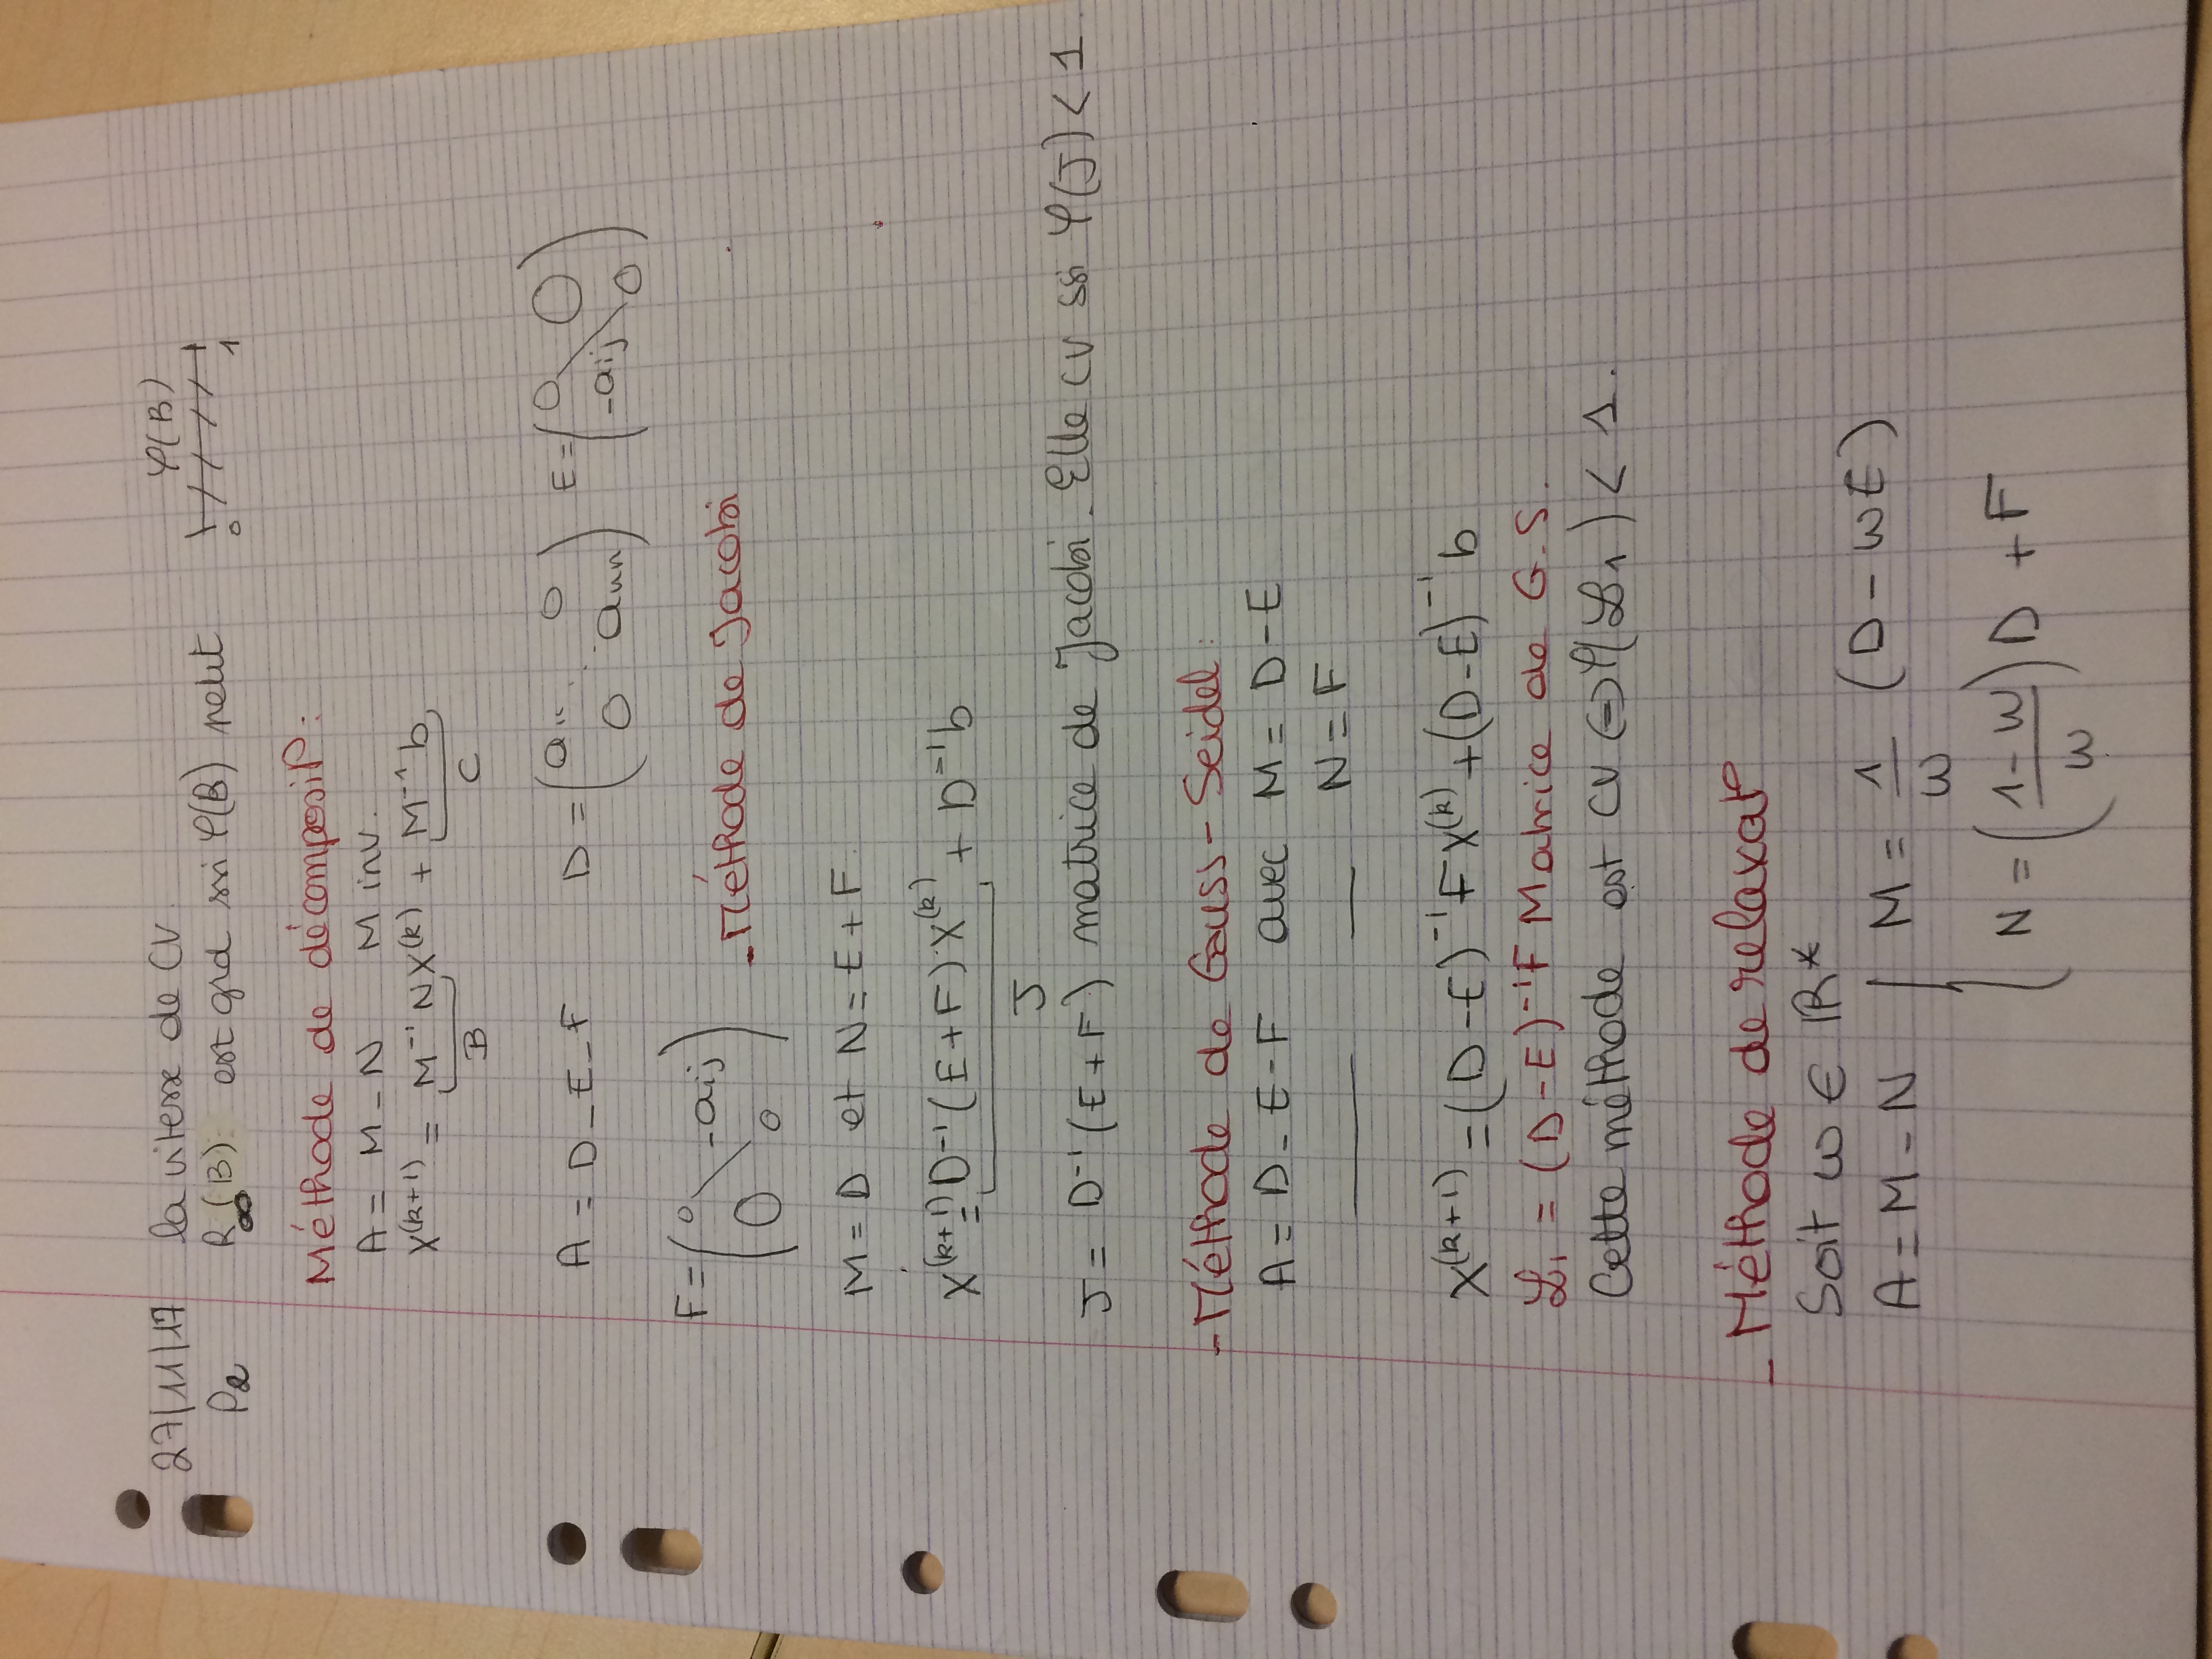 27/11/17 la vitesse de CV. φ(B)
P2 R∞(B) est grd ssi φ(B) petit 0 1
Méthode de décomposit°:
A = M - N M inv.
X^(k+1) = M⁻¹N X^(k) + M⁻¹b
B C
A = D - E - F D = (a₁₁ 0 E = (0 0
0 ann) -aij 0)
F = (0 -aij
0 0) - Méthode de Jacobi
M = D et N = E + F.
X^(k+1) = D⁻¹(E+F) X^(k) + D⁻¹b
J
J = D⁻¹(E+F) matrice de Jacobi. Elle cv ssi φ(J) < 1
- Méthode de Gauss-Seidel:
A = D - E - F avec M = D - E
N = F
X^(k+1) = (D-E)⁻¹F X^(k) + (D-E)⁻¹b
ℒ₁ = (D-E)⁻¹F Matrice de G.S.
Cette méthode est CV ⇔ φ(ℒ₁) < 1.
- Méthode de relaxat°
Soit ω ∈ ℝ*
A = M - N { M = 1/ω (D - ωE)
N = ((1-ω)/ω) D + F